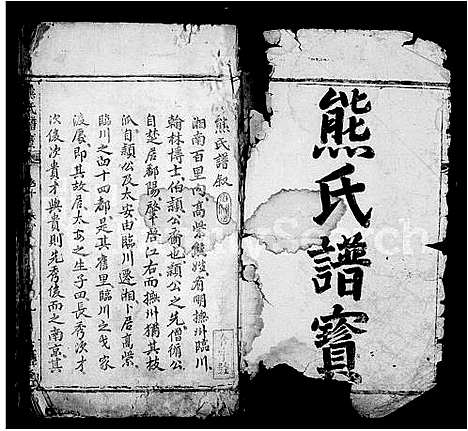 熊氏譜寶
熊氏譜叙
湘南百里內高紫熊嫂有明撫州臨川
翰林博士伯顓公裔也顓公之先僧俏公
自楚居鄱陽肇啓江右而撫州猶其枝
派自顓公及太安由臨川遷湘卜居高紫
臨川之四十四都是其舊里臨川之戈家
渡屢即其故居太安之生子四長秀次才
次俊次貴才與貴則先秀後而之南京其